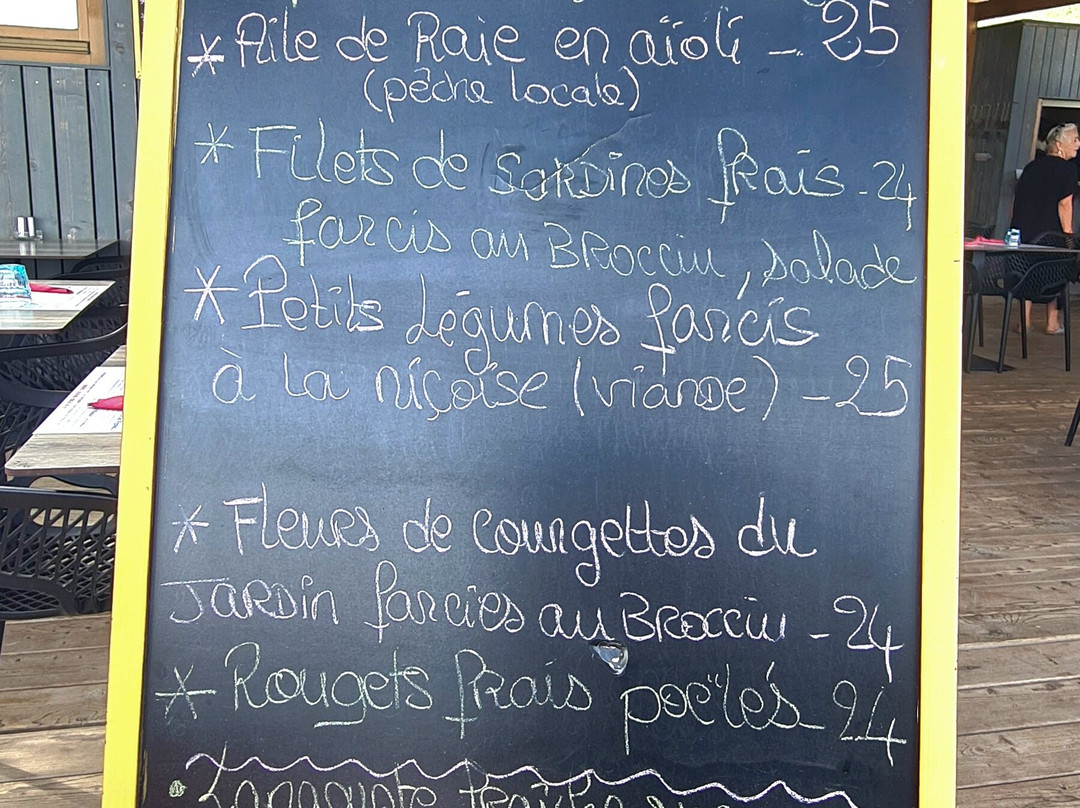 * Aile de Raie en aïoli - 25
(pêche locale)
* Filets de Sardines frais - 24
farcis au Brocciu, salade
* Petits Légumes farcis
à la niçoise (viande) - 25
* Fleurs de courgettes du
Jardin farcies au Brocciu - 24
* Rougets frais poëlés - 24